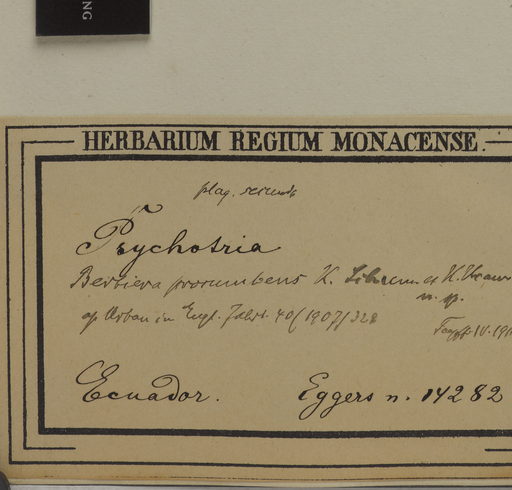 NG
HERBARIUM REGIUM MONACENSE.
plag.
Psychotria
Bertiera procumbens K. Schum. et K. Krause
n. sp.
ap Urban in Engl. Jahrb. 40 (1907) 328
IV. 191
Ecuador. Eggers n. 14282